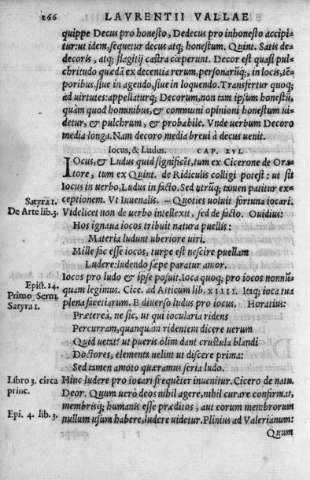 266 LAVRENTII VALLAE
quippe Decus pro honesto, Dedecus pro inhonesto accipi⸗
tur: ut idem, sequetur decus atq; honestum. Quint. Satis de⸗
decoris, atq; flagitij castra cœperunt. Decor est quasi pul⸗
chritudo quædã ex decentia rerum, personarũq;, in locis, tē⸗
poribus, siue in agendo, siue in loquendo. Transfertur quoq;
ad uirtutes: appellaturq; Decorum, non tam ipsum honestũ,
quàm quod hominibus, & communi opinioni honestum ui⸗
detur, & pulchrum, & probabile. Vnde uerbum Decoro
media longa. Nam decoro media breui à decus uenit.
Iocus, & Ludus. CAP. XVI.
IOcus, & Ludus quid significẽt, tum ex Cicerone de Ora⸗
tore, tum ex Quint. de Ridiculis colligi potest: ut sit
Iocus in uerbo, Ludus in facto. Sed utrũq; tamen patitur ex⸗
Satyra 1. ceptionem. Vt Iuuenalis. – Quoties uoluit fortuna iocari.
De Arte lib.3. Videlicet non de uerbo intellexit, sed de facto. Ouidius:
Hos ignaua iocos tribuit natura puellis:
Materia ludunt uberiore uiri.
Mille facesse iocos, turpe est nescire puellam
Ludere: ludendo sæpe paratur amor.
Iocos pro ludo & ipse posuit. Ioca quoq; pro iocos nonnũ⸗
Epist. 14. quam legimus. Cice. ad Atticum lib. XIIII. Itaq; ioca tua
Primo Serm. plena facetiarum. E diuerso ludus pro iocus. Horatius:
Satyra 1. Præterea, ne sic, ut qui iocularia ridens
Percurram, quanquam ridentem dicere uerum
Quid uetat? ut pueris olim dant crustula blandi
Doctores, elementa uelint ut discere prima:
Sed tamen amoto quæramus seria ludo.
Libro 3. circa Hinc ludere pro iocari frequẽter inuenitur. Cicero de natu.
princ. Deor. Quum uerò deos nihil agere, nihil curare confirmat,
membrisq; humanis esse præditos, aut eorum membrorum
Epi. 4. lib. 3. nullum usum habere, ludere uidetur. Plinius ad Valerianum:
Quum